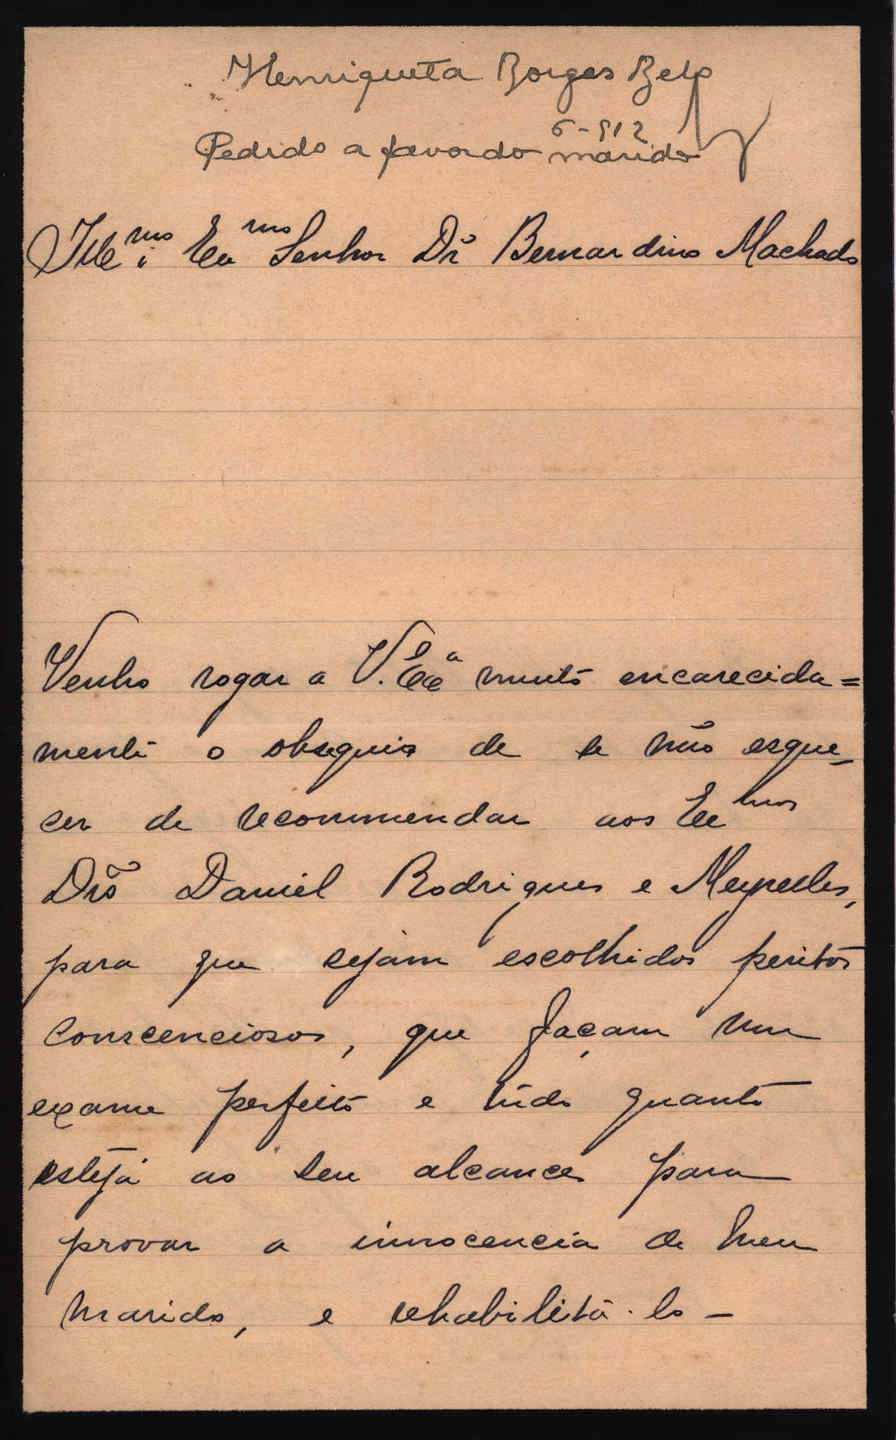 Henriqueta Borges Belo
6-912
Pedido a favor do marido
Illmo i Exmo Senhor Dr Bernardino Machado
Venho rogar a V. Excia muito encarecida=
mente o obsequio de se não esque-
cer de recommendar aos Exmos
Drs Daniel Rodrigues e Meyrelles,
para que sejam escolhidos peritos
conscenciosos, que façam um
exame perfeito e tudo quanto
esteja ao seu alcance para
provar a innocencia de meu
marido, e rehabilitá-lo -